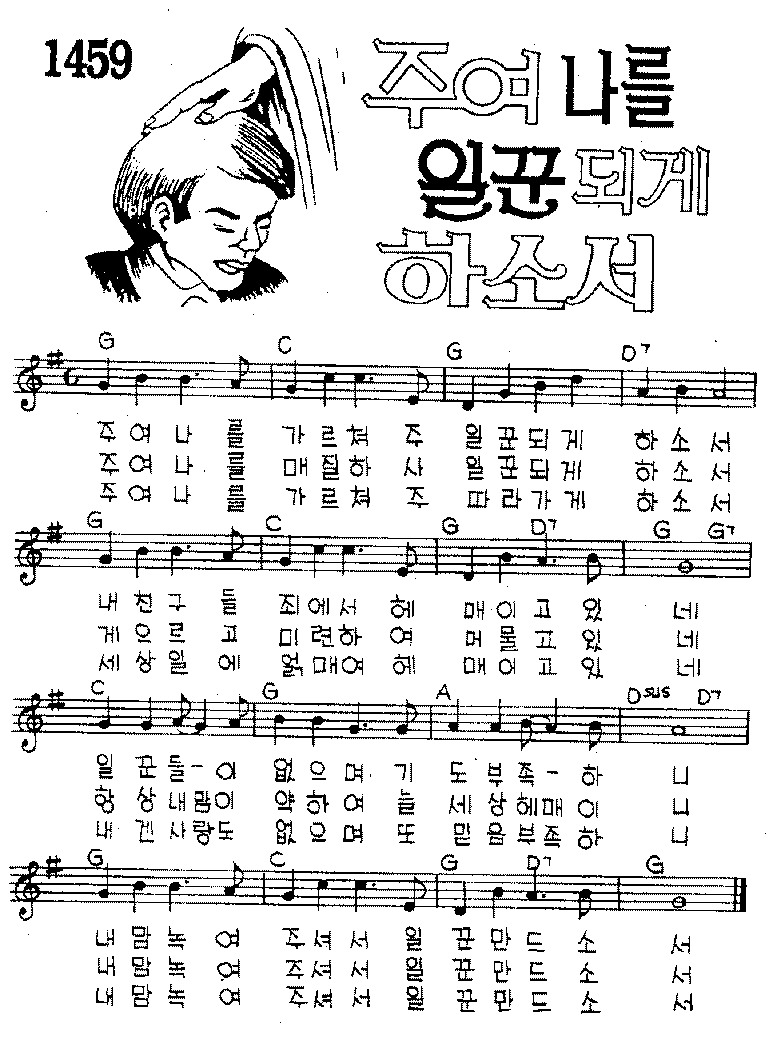 1459
주여 나를
일꾼 되게
하소서
G C G D7
주여나를 가르쳐주 일꾼되게 하소서
주여나를 매질하사 일꾼되게 하소서
주여나를 가르쳐주 따라가게 하소서
G C G D7 G G7
내친구들 죄에서헤 매이고있네
게으르고 미련하여 머물고있네
세상일에 얽매여헤 매이고있네
C G A Dsus D7
일꾼들-이 없으며기 도부족-하니
항상내맘이 약하여늘 세상헤매이니
내겐사랑도 없으며또 믿음부족하니
G C G D7 G
내맘녹여 주셔서일 꾼만드소서
내맘녹여 주셔서일 꾼만드소서
내맘녹여 주셔서일 꾼만드소서